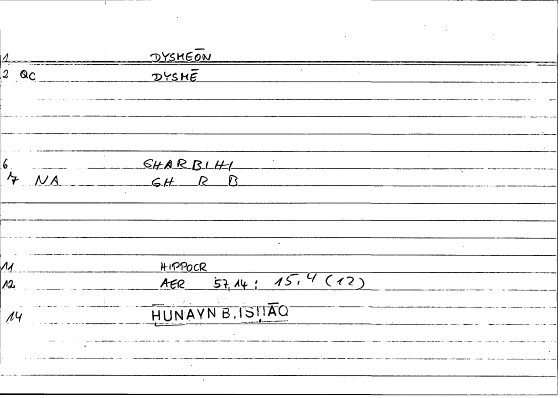 1 DYSMEŌN
2 QC DYSMĒ
6 GHARBIHI
7 NA GH R B
11 HIPPOCR
12 AER 57,14: 15,4 (12)
14 ḤUNAYN B. ISḤĀQ